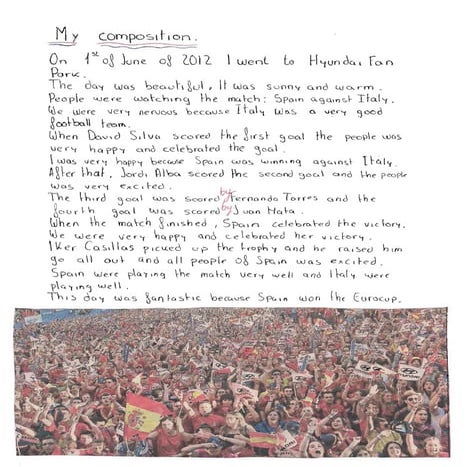 My composition.
On 1st of June of 2012 I went to Hyundai Fan
Park.
The day was beautiful, It was sunny and warm.
People were watching the match: Spain against Italy.
We were very nervous because Italy was a very good
football team.
When David Silva scored the first goal the people was
very happy and celebrated the goal.
I was very happy because Spain was winning against Italy.
After that, Jordi Alba scored the second goal and the people
was very excited.
The third goal was scored by Fernando Torres and the
fourth goal was scored by Juan Mata.
When the match finished, Spain celebrated the victory.
We were very happy and celebrated her victory.
Iker Casillas picued up the trophy and he raised him
go all out and all people of Spain was excited.
Spain were playing the match very well and Italy were
playing well.
This day was fantastic because Spain won the Eurocup.